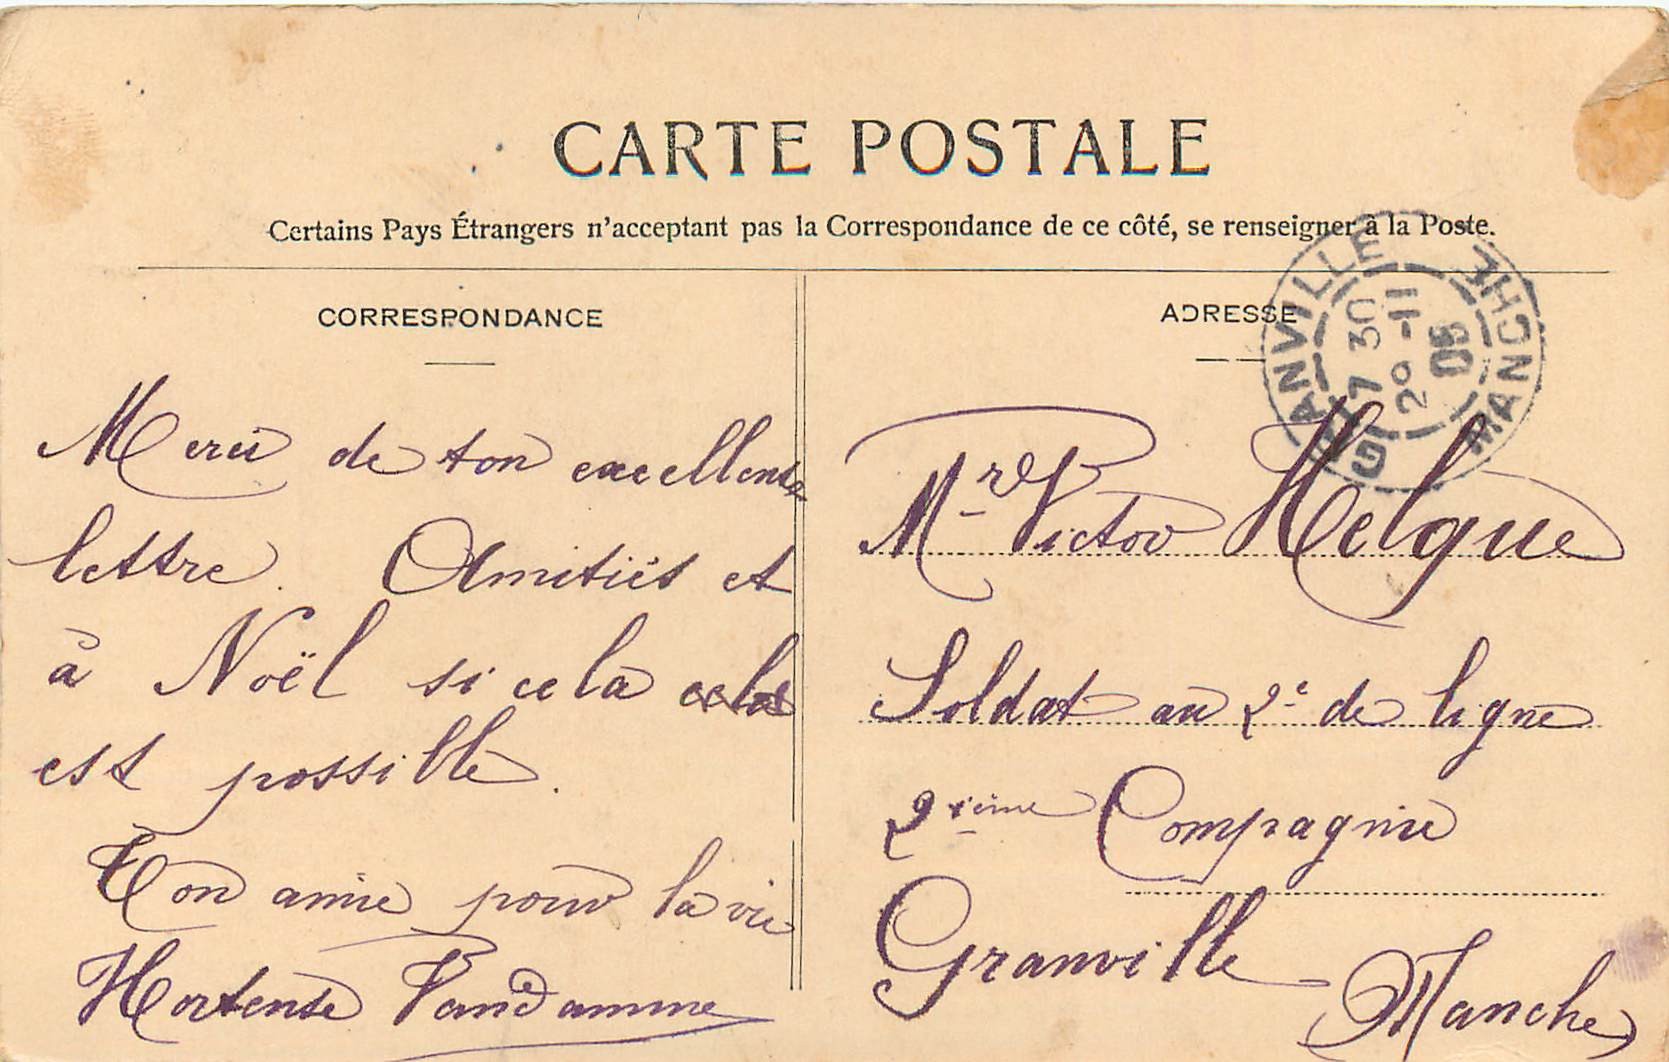 CARTE POSTALE
Certains Pays Étrangers n'acceptant pas la Correspondance de ce côté, se renseigner à la Poste.
CORRESPONDANCE
Merci de ton excellente
lettre. Amitiés et
à Noël si cela cela
est possible.
Ton amie pour la vie
Hortense Vandamme
ADRESSE
GRANVILLE
7 30
29 -11
05
MANCHE
Mr Victor Helque
Soldat au 2e de ligne
2xième Compagnie
Granville
Manche